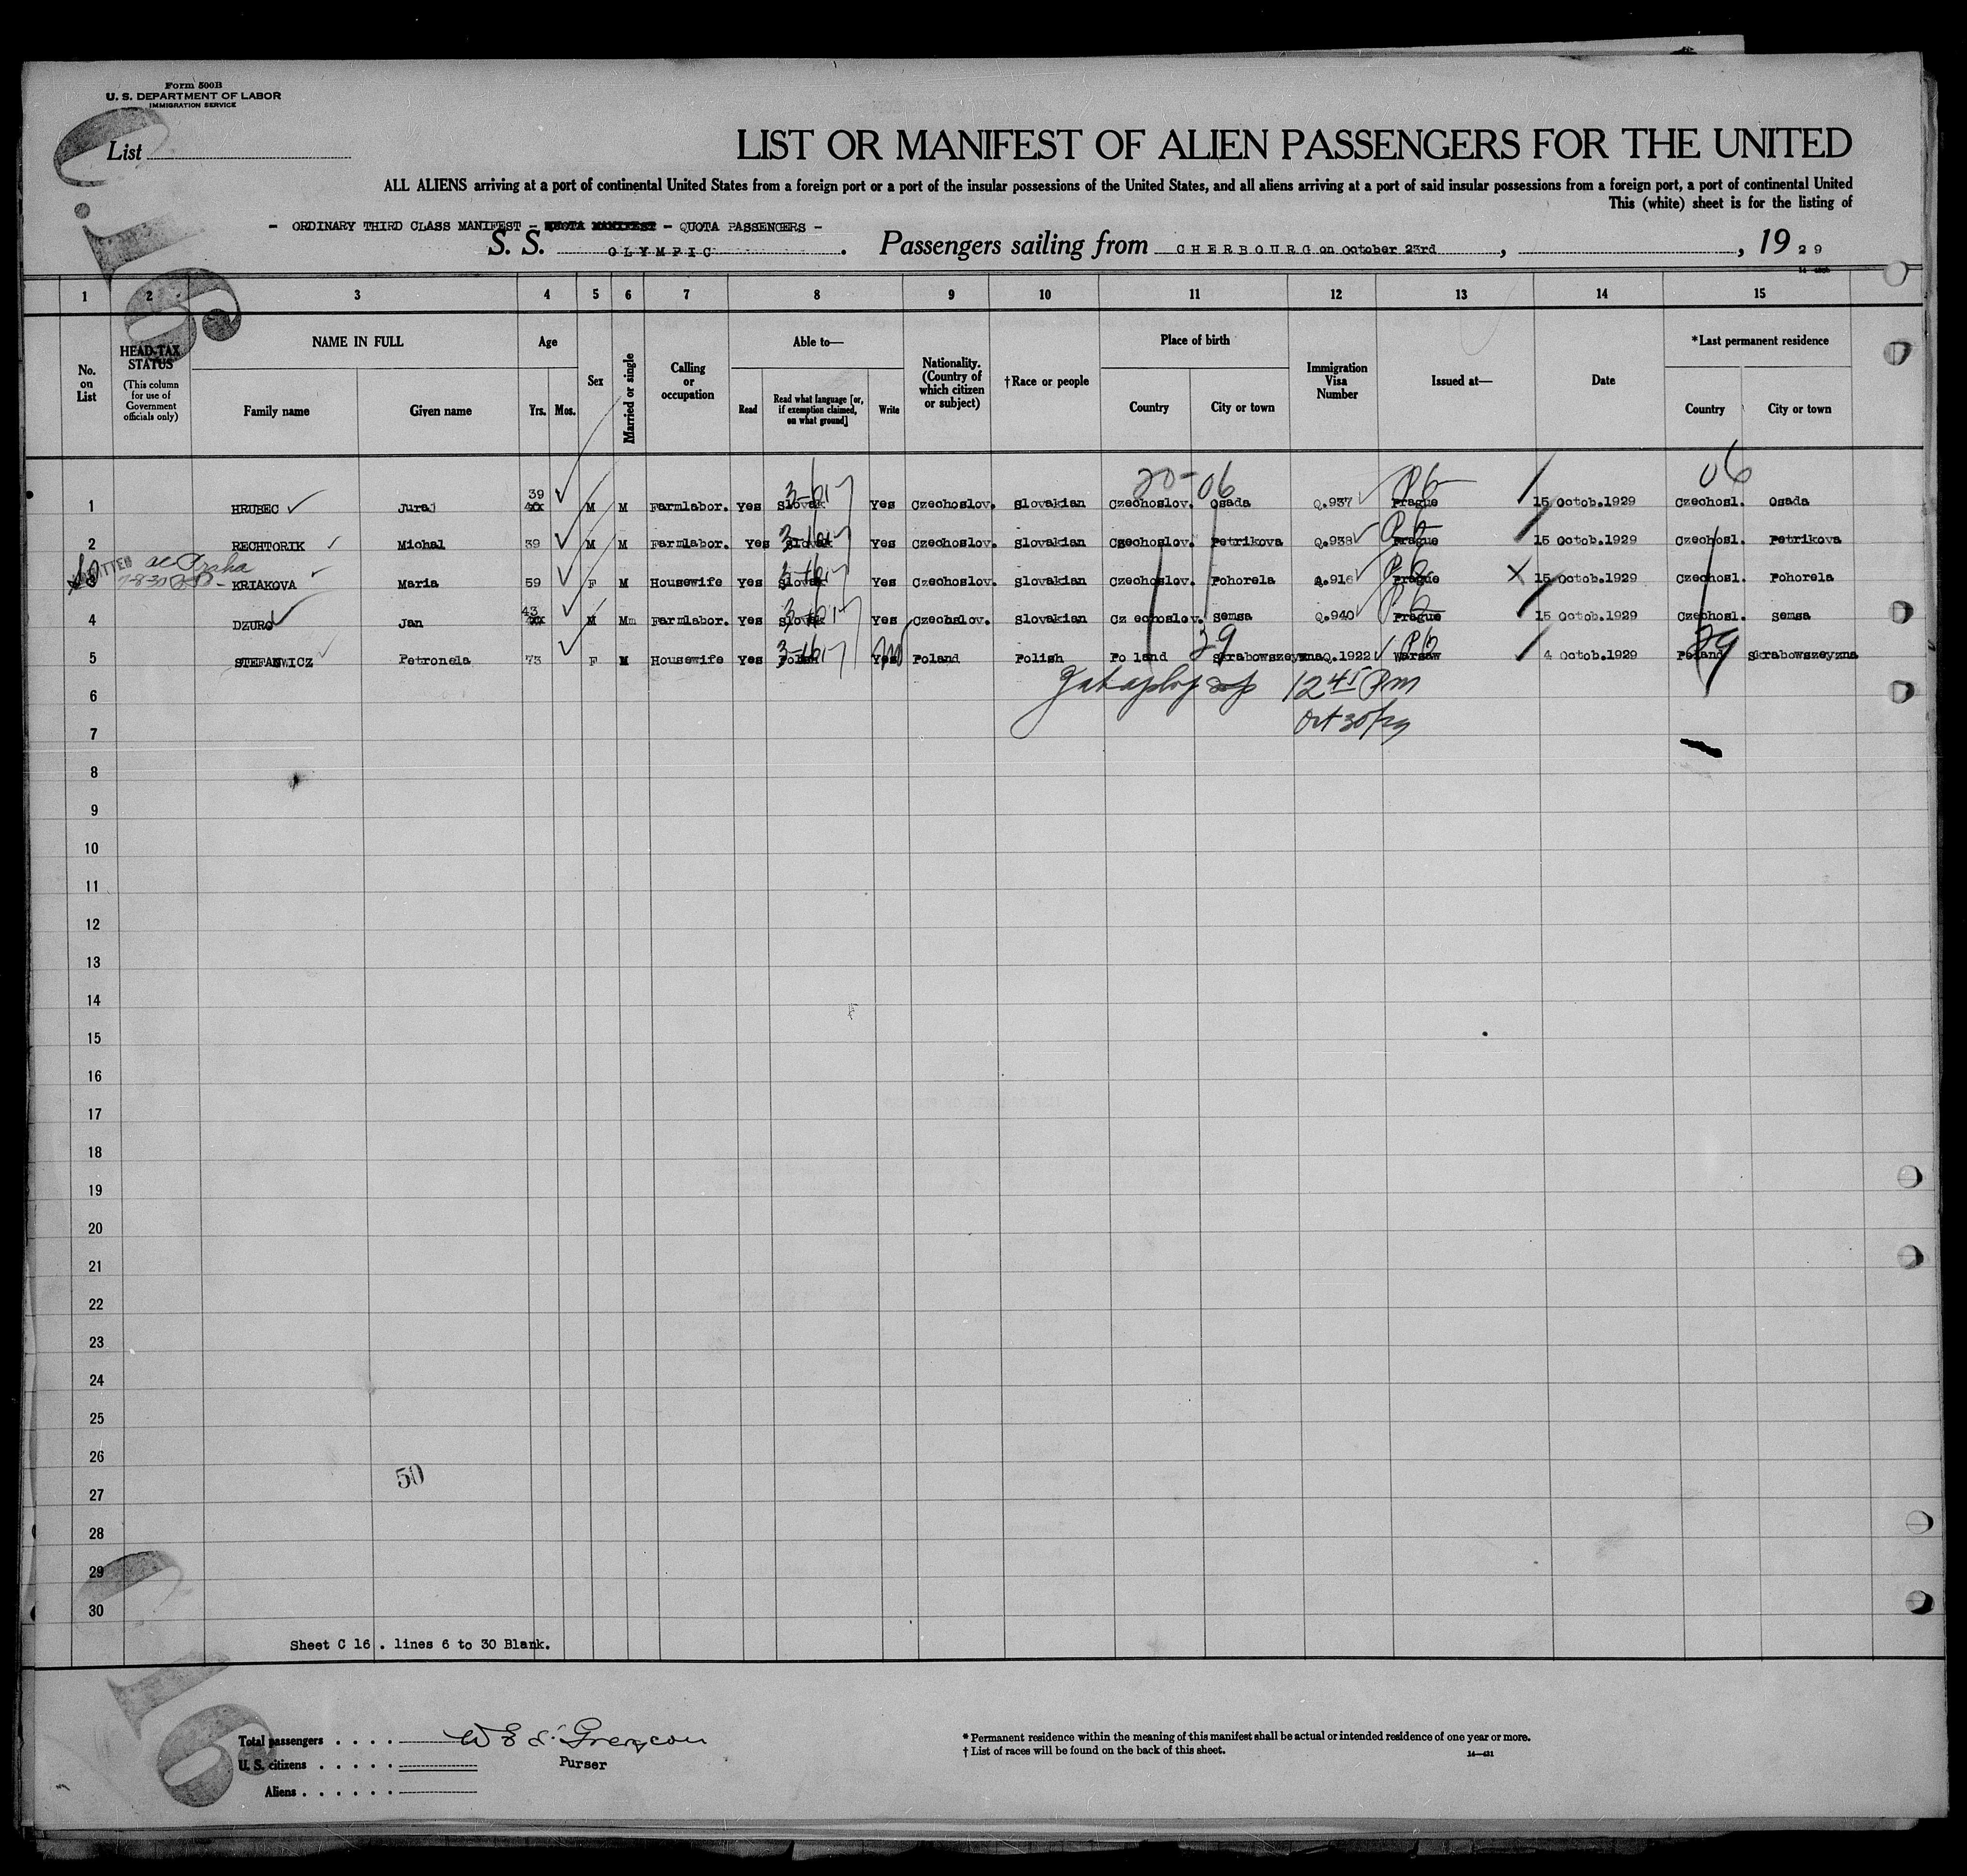 Form 500B
U. S. DEPARTMENT OF LABOR
IMMIGRATION SERVICE
List
LIST OR MANIFEST OF ALIEN PASSENGERS FOR THE UNITED
ALL ALIENS arriving at a port of continental United States from a foreign port or a port of the insular possessions of the United States, and all aliens arriving at a port of said insular possessions from a foreign port, a port of continental United
This (white) sheet is for the listing of
- ORDINARY THIRD CLASS MANIFEST - QUOTA MANIFEST - QUOTA PASSENGERS -
S. S. OLYMPIC. Passengers sailing from CHERBOURG on October 23rd, , 1929
1 2 3 4 5 6 7 8 9 10 11 12 13 14 15
No. on List
HEAD-TAX STATUS (This column for use of Government officials only)
NAME IN FULL Family name Given name
Age Yrs. Mos.
Sex
Married or single
Calling or occupation
Able to— Read Read what language [or, if exemption claimed, on what ground] Write
Nationality. (Country of which citizen or subject)
†Race or people
Place of birth Country City or town
Immigration Visa Number
Issued at—
Date
*Last permanent residence Country City or town
20-06 06
1 HRUBEC Juraj 39 M M Farmlabor. Yes Slovak Yes Czechoslov. Slovakian Czechoslov. Osada Q.937 Prague 15 Octob.1929 Czechosl. Osada
2 RECHTORIK Michal 39 M M Farmlabor. Yes Slovak Yes Czechoslov. Slovakian Czechoslov. Petrikova Q.938 Prague 15 Octob.1929 Czechosl. Petrikova
ADMITTED
3 KRIAKOVA Maria 59 F M Housewife Yes Slovak Yes Czechoslov. Slovakian Czechoslov. Pohorela Q.916 Prague 15 Octob.1929 Czechosl. Pohorela
4 DZURO Jan 43 M Mm Farmlabor. Yes Slovak Yes Czechslov. Slovakian Cz echoslov. Semsa Q.940 Prague 15 Octob.1929 Czechosl. Semsa
5 STEFANWICZ Petronela 73 F M Housewife Yes Polish Yes Poland Polish Po land Skrabowszeyzna Q.1922 Warsaw 4 Octob.1929 Poland Skrabowszeyzna
39 29
12 45 Pm
Oct 30/29
6
7
8
9
10
11
12
13
14
15
16
17
18
19
20
21
22
23
24
25
26
50
27
28
29
30
Sheet C 16 . lines 6 to 30 Blank.
Total passengers . . . .
U. S. citizens . . . . .
Purser
Aliens . . . . . .
* Permanent residence within the meaning of this manifest shall be actual or intended residence of one year or more.
† List of races will be found on the back of this sheet.